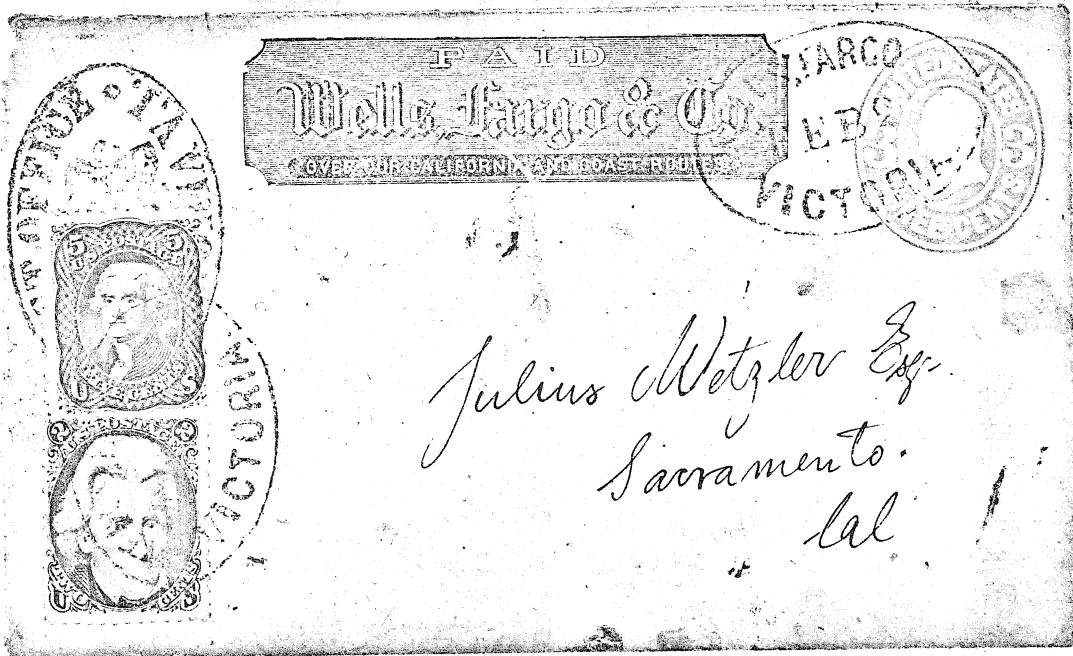 PAID
Wells, Fargo & Co.
OVER OUR CALIFORNIA AND COAST ROUTES
FARGO
FEB 8
VICTORIA
UNITED STATES
THREE CENTS
POST OFFICE
5 5
U.S. POSTAGE
FIVE CENTS
U S
VICTORIA
2 2
U.S. POSTAGE
TWO CENTS
U S
Julius Wetzler Esq.
Sacramento.
Cal